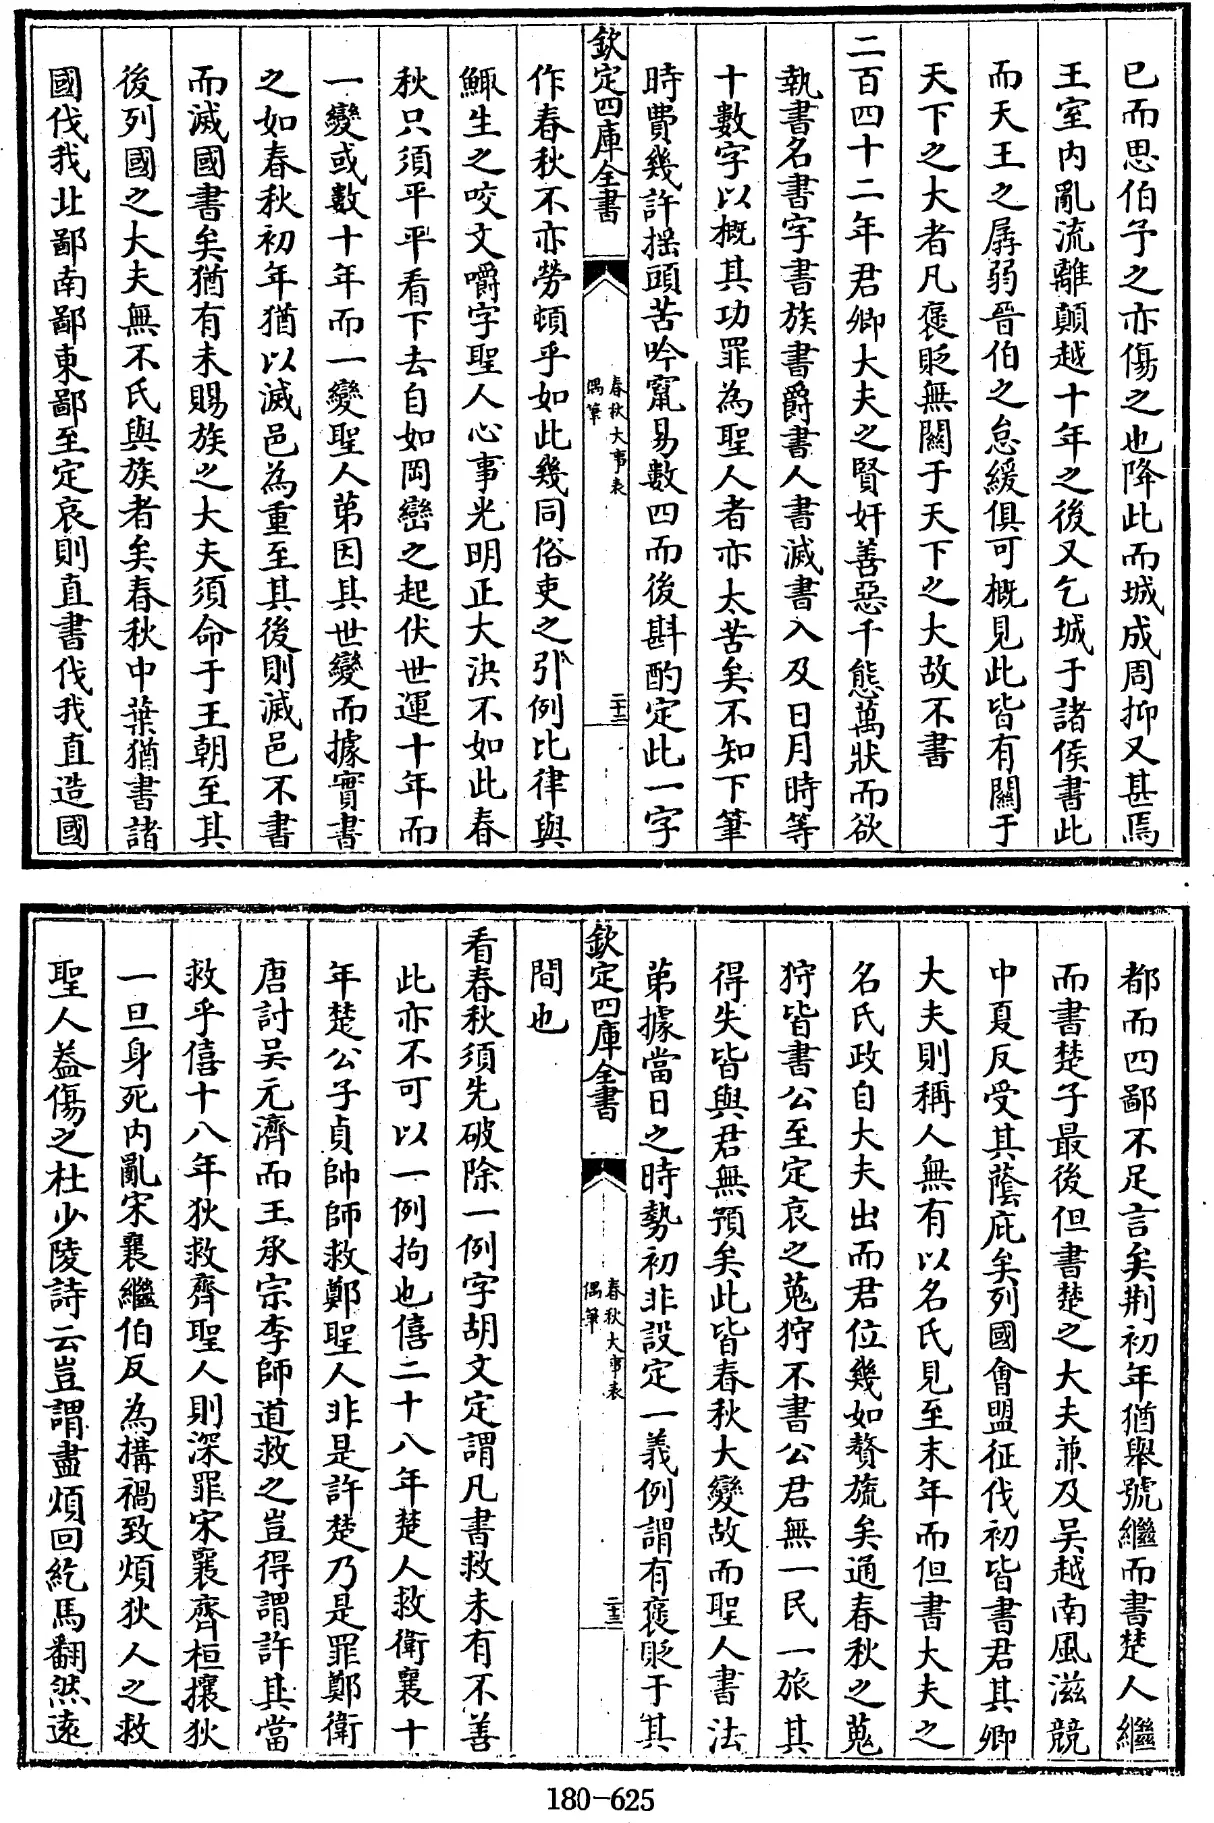 已而思伯予之亦傷之也降此而城成周抑又甚焉
王室内亂流離顛越十年之後又乞城于諸侯書此
而天王之孱弱晉伯之怠緩俱可概見此皆有關于
天下之大者凡褒貶無關于天下之大故不書
二百四十二年君卿大夫之賢奸善惡千態萬狀而欲
執書名書字書族書爵書人書滅書入及日月時等
十數字以概其功罪為聖人者亦太苦矣不知下筆
時費幾許揺頭苦吟竄易數四而後斟酌定此一字
欽定四庫全書
春秋大事表
偶筆
二十二
作春秋不亦勞頓乎如此幾同俗吏之引例比律與
鯫生之咬文嚼字聖人心事光明正大決不如此春
秋只須平平看下去自如岡巒之起伏世運十年而
一變或數十年而一變聖人第因其世變而據實書
之如春秋初年猶以滅邑為重至其後則滅邑不書
而滅國書矣猶有未賜族之大夫須命于王朝至其
後列國之大夫無不氏與族者矣春秋中葉猶書諸
國伐我北鄙南鄙東鄙至定哀則直書伐我直造國
都而四鄙不足言矣荆初年猶舉號繼而書楚人繼
而書楚子最後但書楚之大夫兼及吴越南風滋競
中夏反受其蔭庇矣列國會盟征伐初皆書君其卿
大夫則稱人無有以名氏見至末年而但書大夫之
名氏政自大夫出而君位幾如贅旒矣通春秋之蒐
狩皆書公至定哀之蒐狩不書公君無一民一旅其
得失皆與君無預矣此皆春秋大變故而聖人書法
第據當日之時勢初非設定一義例謂有褒貶于其
欽定四庫全書
春秋大事表
偶筆
二十三
間也
看春秋須先破除一例字胡文定謂凡書救未有不善
此亦不可以一例拘也僖二十八年楚人救衛襄十
年楚公子貞帥師救鄭聖人非是許楚乃是罪鄭衛
唐討吴元濟而王承宗李師道救之豈得謂許其當
救乎僖十八年狄救齊聖人則深罪宋襄齊桓攘狄
一旦身死内亂宋襄繼伯反為搆禍致煩狄人之救
聖人葢傷之杜少陵詩云豈謂盡煩回紇馬翻然遠
180-625